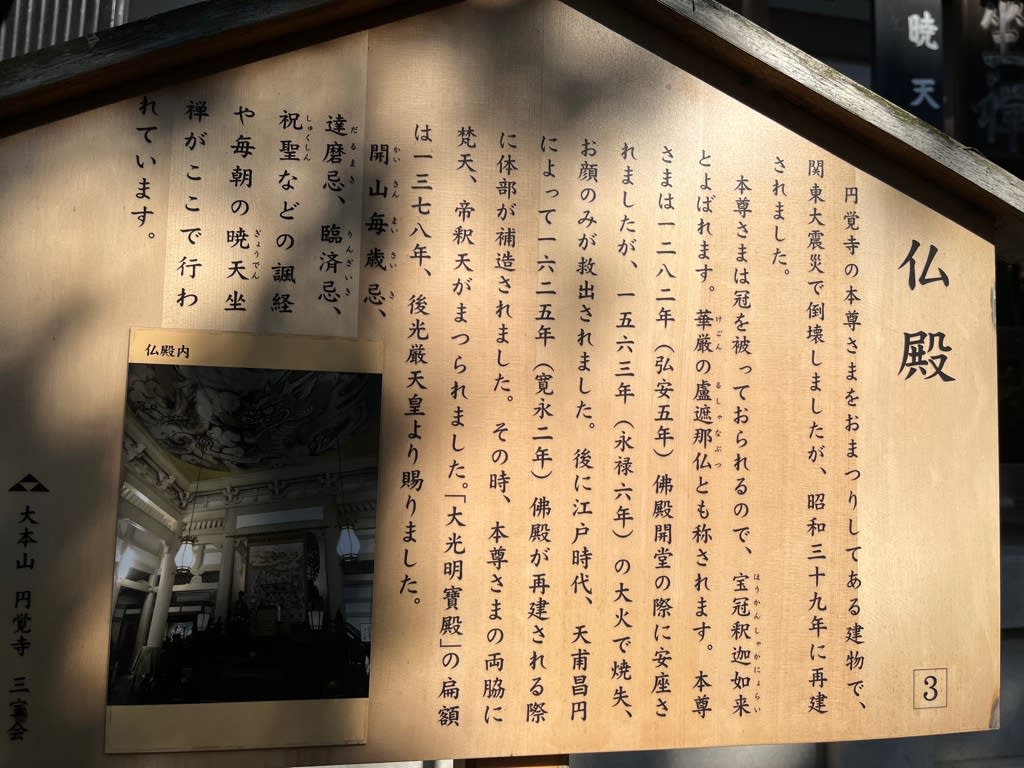 仏殿
3
円覚寺の本尊さまをおまつりしてある建物で、
関東大震災で倒壊しましたが、昭和三十九年に再建
されました。
本尊さまは冠を被っておられるので、宝冠釈迦如来
ほうかんしゃかにょらい
とよばれます。華厳の盧遮那仏とも称されます。本尊
けごん
るしゃなぶつ
さまは一二八二年(弘安五年)佛殿開堂の際に安座さ
れましたが、一五六三年(永禄六年)の大火で焼失、
お顔のみが救出されました。後に江戸時代、天甫昌円
によって一六二五年(寛永二年)佛殿が再建される際
に体部が補造されました。その時、本尊さまの両脇に
梵天、帝釈天がまつられました。「大光明寶殿」の扁額
は一三七八年、後光厳天皇より賜りました。
開山毎歳忌、
かいさんまいさいき
達磨忌、臨済忌、
だるまき
りんざいき
祝聖などの諷経
しゅくしん
や毎朝の暁天坐
ぎょうてん
禅がここで行わ
れています。
仏殿内
大本山 円覚寺 三宝会
暁天
坐禅